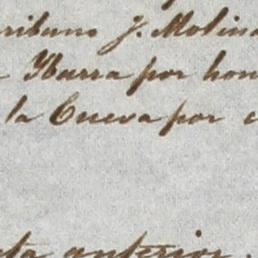 J. Molina
Ybarra por hon
la Cueva por
anterior.